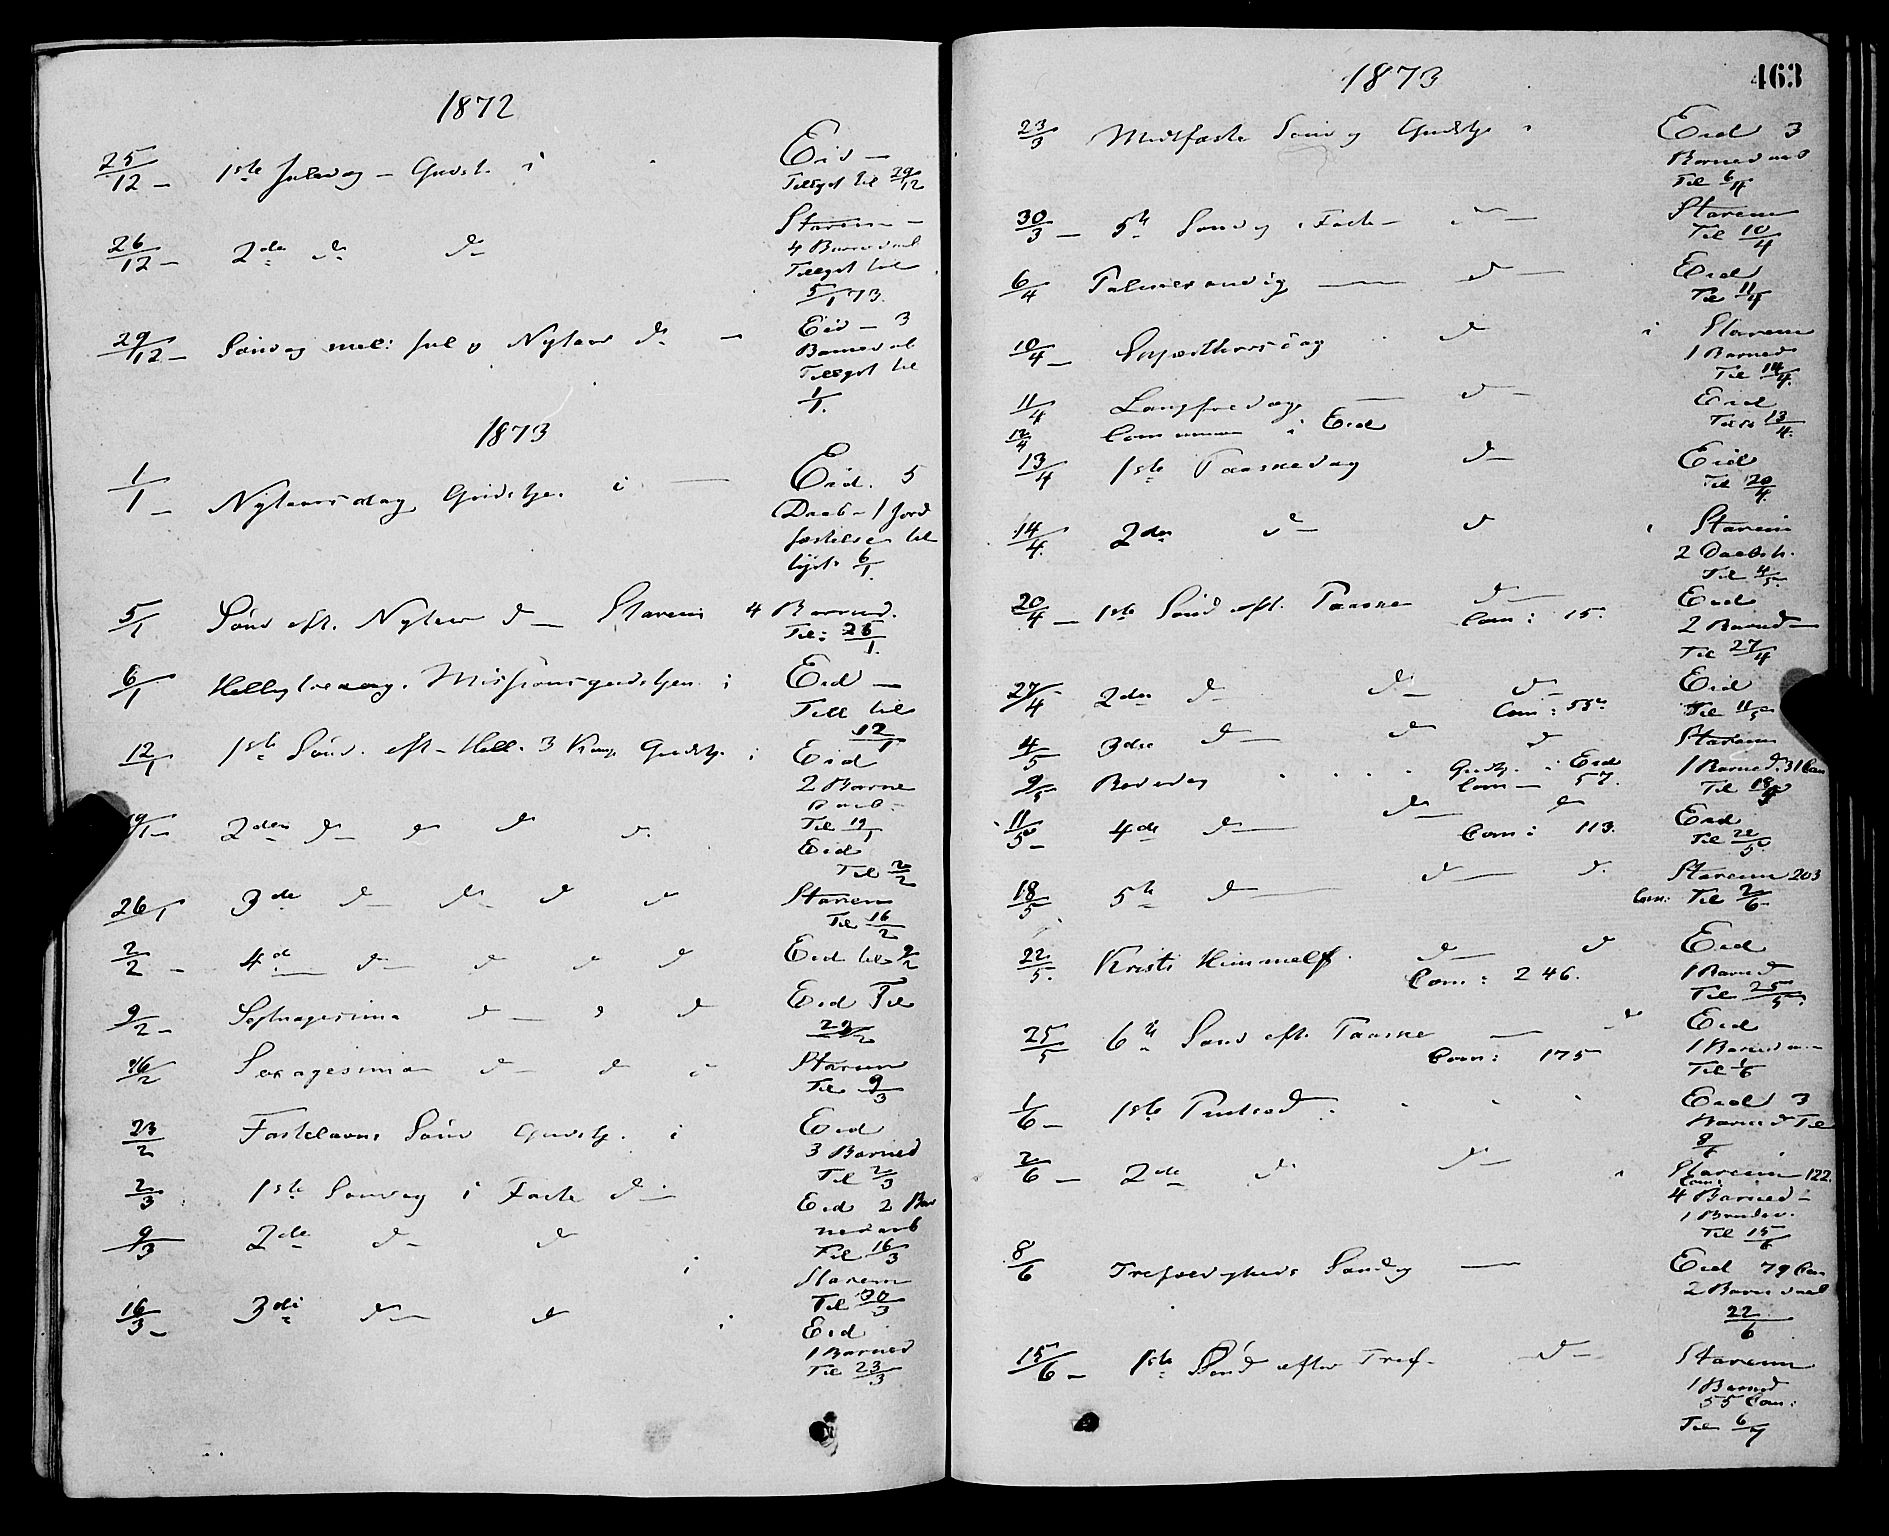 1872
25/12 – 1ste Juledag – Gudst. i Eid –
Tillyst til 29/12
Starem –
26/12 – 2de do do 4 Barnedaab
Tillyst til
5/1 73.
29/12 – Søndag mel: Jul o Nytaar do – Eid – 3
Barnedaab
Tillyst til
1/1.
1873
1/1 – Nytaarsdag Gudstje. i Eid. 5
Daab – 1 Jord
fæstelse til
lyst 6/1.
5/1 Sønd eft. Nytaar d – Starem 4 Barned.
Til: 26/1.
6/1 Helligtredag. Missionsgudstjen. i Eid –
Till til
12/1
12/1 1ste Sønd. eft – Hell. 3 Kong. Gudstj. i Eid
2 Barne
Daab –
19/1 – 2den d – d d d. Til 19/1
Eid
Til 2/2
26/1 3de d – d – d d Starem
Til 16/2
2/2 – 4d d – d d d Eid til 9/2
9/2 – Septuagesima d – d d Eid Til
23/2
16/2 Sexagesima d – d d Starem
Til 9/3
23/2 Fastelavns Sønd Gudstj. i Eid
3 Barned
Til 2/3
2/3 1ste Søndag i Faste d – Eid 2 Bar
nedaab
9/3 2de d – d Til 16/3
i Starem
Til 30/3
16/3 – 3di d – d i Eid
1 Barned
Til 23/3
1873 463
23/3 Midtfaste Sønd g Gudstje i Eid 3
Barnedaab
Til 6/4
30/3 – 5te Sønd g i Faste – d – Starem
Til 10/4
6/4 Palmesøndag – d – Eid
Til 11/4
10/4 – Skjærthorsdag d i Starem
1 Barned
Til 14/4.
11/4 Langfredag – d – Eid
12/4 Commun i Eid Til 13/4.
13/4 1ste Paaskedag d – Eid
Til 20/4
14/4. 2den d – d i Starem
2 Daabsh.
Til 4/5
20/4 – 1ste Sønd eft. Paaske d – Eid
Com: 15. 2 Barned –
Til 27/4
27/4 2den d d – d – Eid
Com: 53 Til 11/5
4/5 3die d – d d Starem
9/5 Bededag Gudstj. i Eid 1 Barned. 31 Com
Com – 57. Til 18/5
11/5 – 4de d – d – d Eid
Com: 113. Til 22/5.
18/5 5te d – d – d. Starem 203
Com: Til 2/6
22/5. Kristi Himmelf. d – d Eid
Com: 246. 1 Barned
Til 25/5.
25/5 6te Sønd eft. Paaske – d Eid
Com: 175 1 Barneda
Til 1/6
1/6 – 1ste Pintsed. Eid 3
Barned Til
8/6
2/6 – 2de d – d – i Starem 122.
Com:
4 Barned –
1 Brudev.
Til 15/6
8/6 Trefoldigheds Søndag – Eid 79 Com
2 Barnedaab
22/6
15/6 – 1ste Sønd efter Tref. – d – Starem
1 Barned
55 Com:
Til 6/7